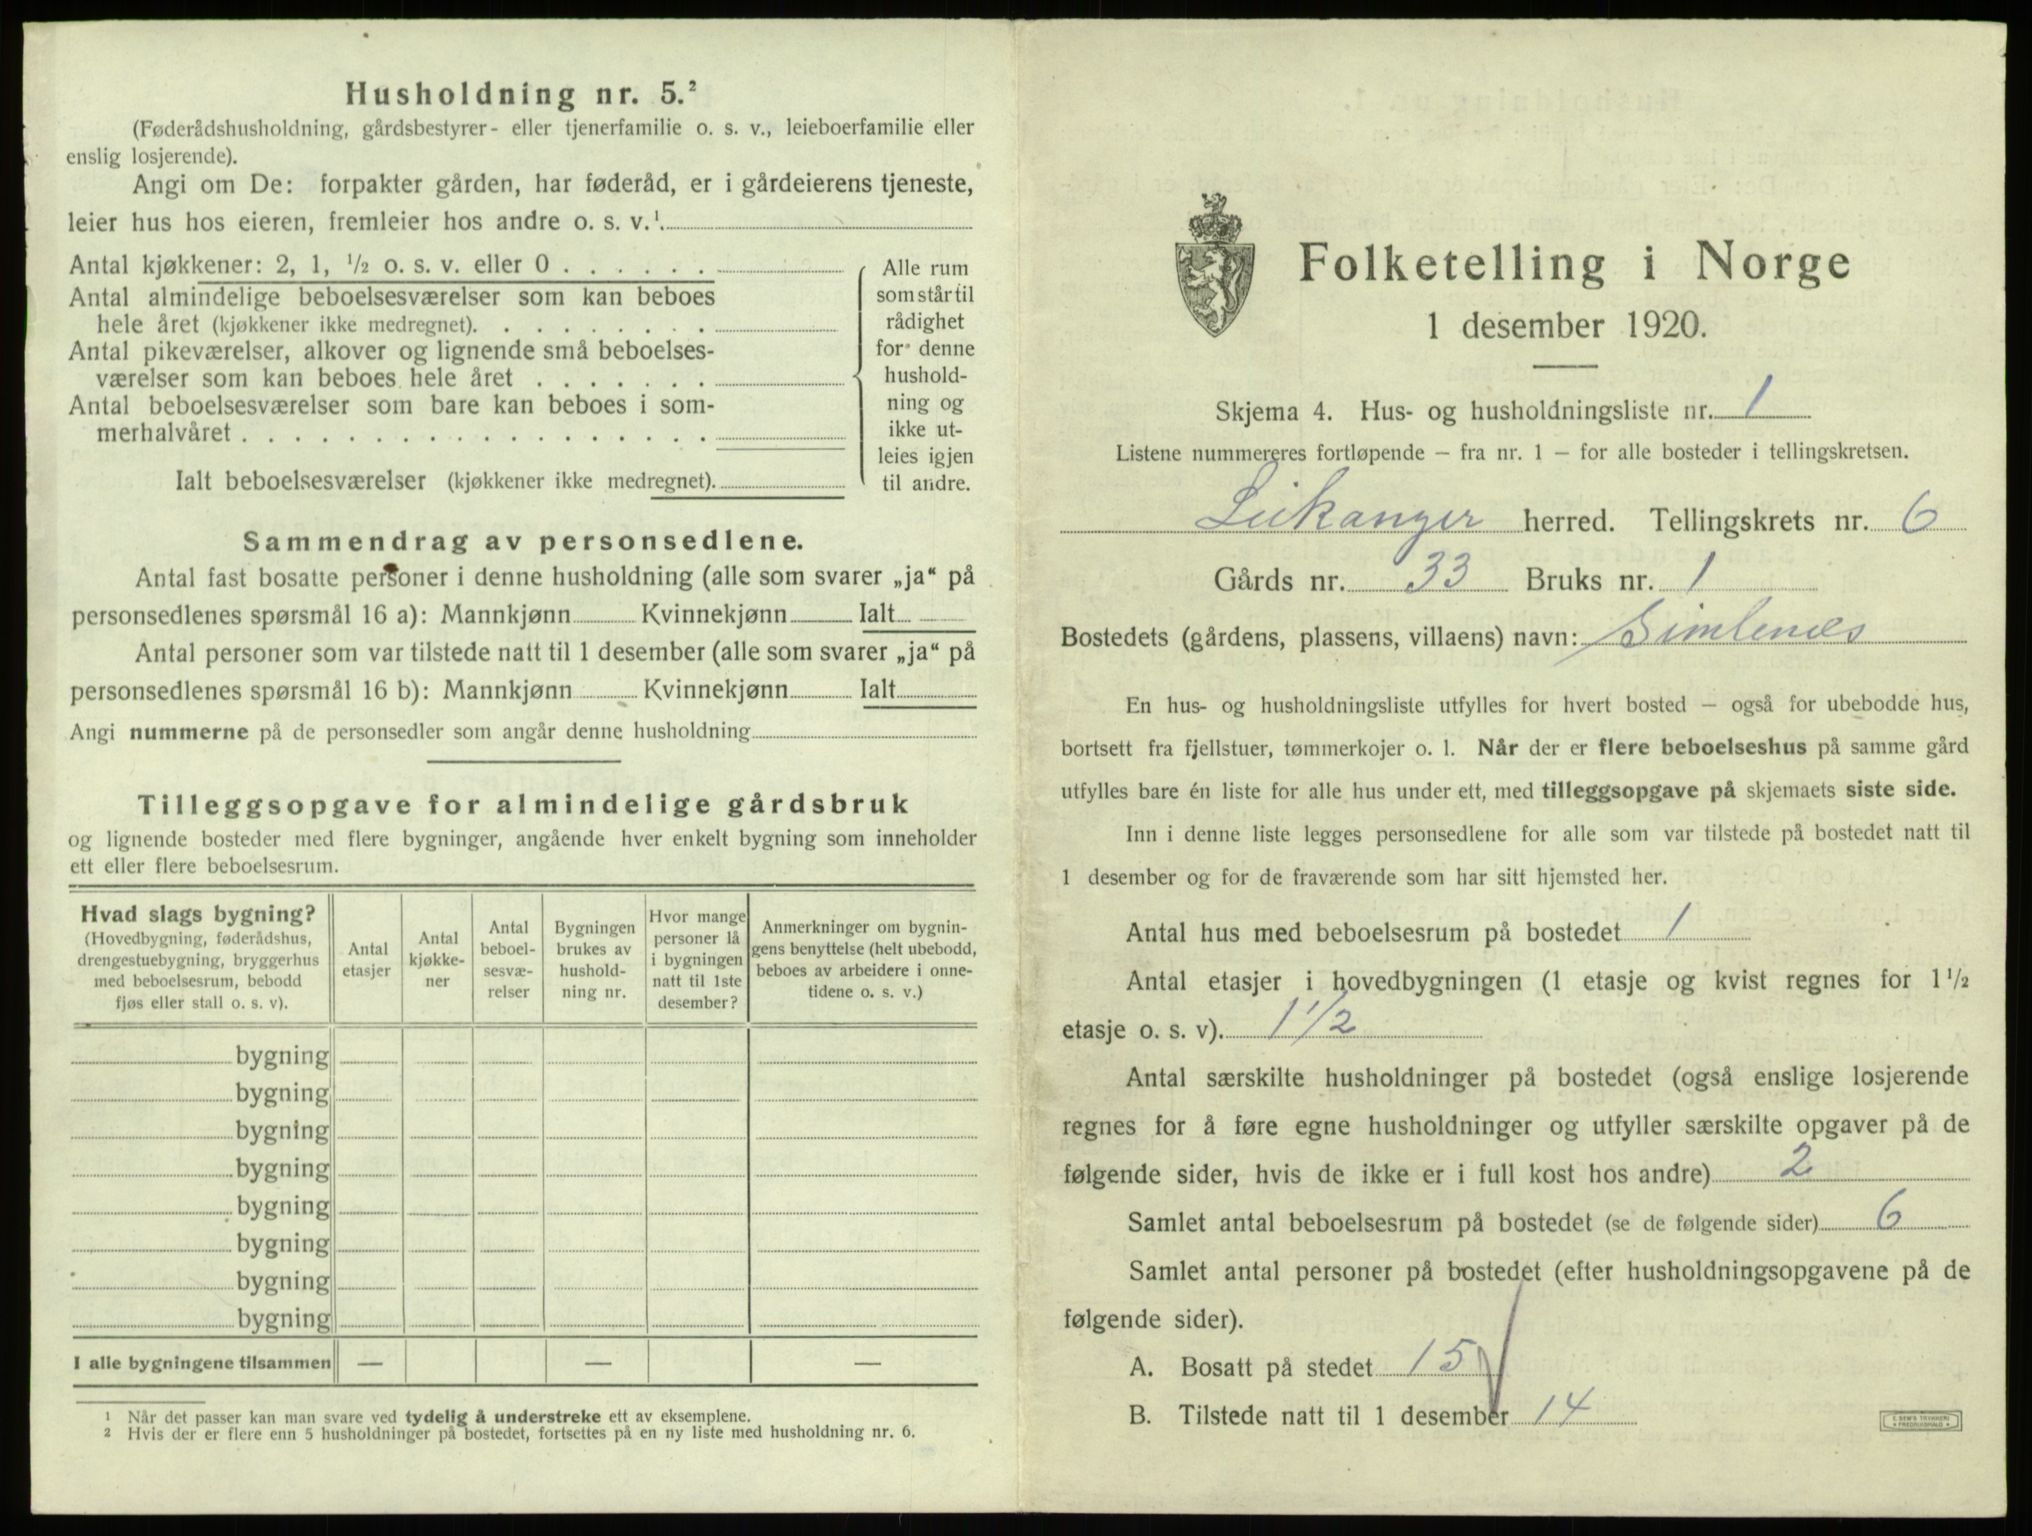 Husholdning nr. 5.²
(Føderådshusholdning, gårdsbestyrer- eller tjenerfamilie o. s. v., leieboerfamilie eller
enslig losjerende).
Angi om De: forpakter gården, har føderåd, er i gårdeierens tjeneste,
leier hus hos eieren, fremleier hos andre o. s. v.¹
Antal kjøkkener: 2, 1, ½ o. s. v. eller 0
Antal almindelige beboelsesværelser som kan beboes
hele året (kjøkkener ikke medregnet).
Antal pikeværelser, alkover og lignende små beboelses-
værelser som kan beboes hele året
Antal beboelsesværelser som bare kan beboes i som-
merhalvåret
Ialt beboelsesværelser (kjøkkener ikke medregnet).
Alle rum
som står til
rådighet
for denne
hushold-
ning og
ikke ut-
leies igjen
til andre.
Sammendrag av personsedlene.
Antal fast bosatte personer i denne husholdning (alle som svarer „ja“ på
personsedlenes spørsmål 16 a): Mannkjønn Kvinnekjønn Ialt
Antal personer som var tilstede natt til 1 desember (alle som svarer „ja“ på
personsedlenes spørsmål 16 b): Mannkjønn Kvinnekjønn Ialt
Angi nummerne på de personsedler som angår denne husholdning
Tilleggsopgave for almindelige gårdsbruk
og lignende bosteder med flere bygninger, angående hver enkelt bygning som inneholder
ett eller flere beboelsesrum.
Hvad slags bygning?
(Hovedbygning, føderådshus,
drengestuebygning, bryggerhus
med beboelsesrum, bebodd
fjøs eller stall o. s. v).
Antal
etasjer
Antal
kjøkke-
ner
Antal
beboel-
sesvæ-
relser
Bygningen
brukes av
hushold-
ning nr.
Hvor mange
personer lå
i bygningen
natt til 1ste
desember?
Anmerkninger om bygnin-
gens benyttelse (helt ubebodd,
beboes av arbeidere i onne-
tidene o. s. v.)
bygning
bygning
bygning
bygning
bygning
bygning
bygning
bygning
I alle bygningene tilsammen — — —
¹ Når det passer kan man svare ved tydelig å understreke ett av eksemplene.
² Hvis der er flere enn 5 husholdninger på bostedet, fortsettes på en ny liste med husholdning nr. 6.
Folketelling i Norge
1 desember 1920.
Skjema 4. Hus- og husholdningsliste nr. 1
Listene nummereres fortløpende – fra nr. 1 – for alle bosteder i tellingskretsen.
Leikanger herred. Tellingskrets nr. 6
Gårds nr. 33 Bruks nr. 1
Bostedets (gårdens, plassens, villaens) navn: Simlenæs
En hus- og husholdningsliste utfylles for hvert bosted – også for ubebodde hus,
bortsett fra fjellstuer, tømmerkojer o. l. Når der er flere beboelseshus på samme gård
utfylles bare én liste for alle hus under ett, med tilleggsopgave på skjemaets siste side.
Inn i denne liste legges personsedlene for alle som var tilstede på bostedet natt til
1 desember og for de fraværende som har sitt hjemsted her.
Antal hus med beboelsesrum på bostedet 1
Antal etasjer i hovedbygningen (1 etasje og kvist regnes for 1½
etasje o. s. v). 1½
Antal særskilte husholdninger på bostedet (også enslige losjerende
regnes for å føre egne husholdninger og utfyller særskilte opgaver på de
følgende sider, hvis de ikke er i full kost hos andre) 2
Samlet antal beboelsesrum på bostedet (se de følgende sider) 6
Samlet antal personer på bostedet (efter husholdningsopgavene på de
følgende sider).
A. Bosatt på stedet 15
B. Tilstede natt til 1 desember 14
E. SEM'S TRYKKERI
FREDRIKSHALD